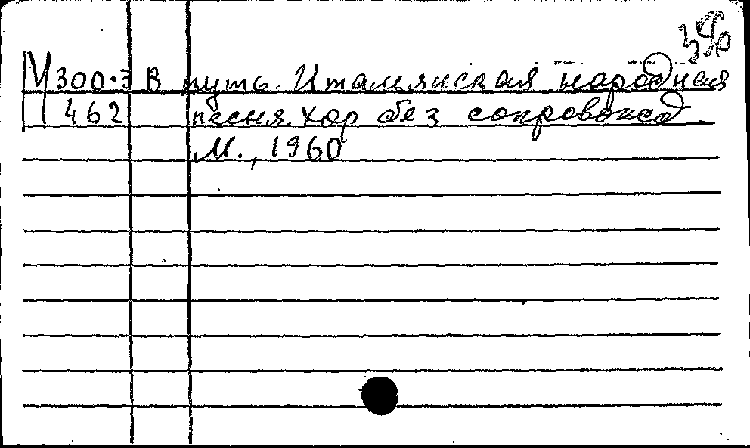 М300:3 В путь. Итальянская народная
462 песня. Хор без сопровожд.
М., 1960